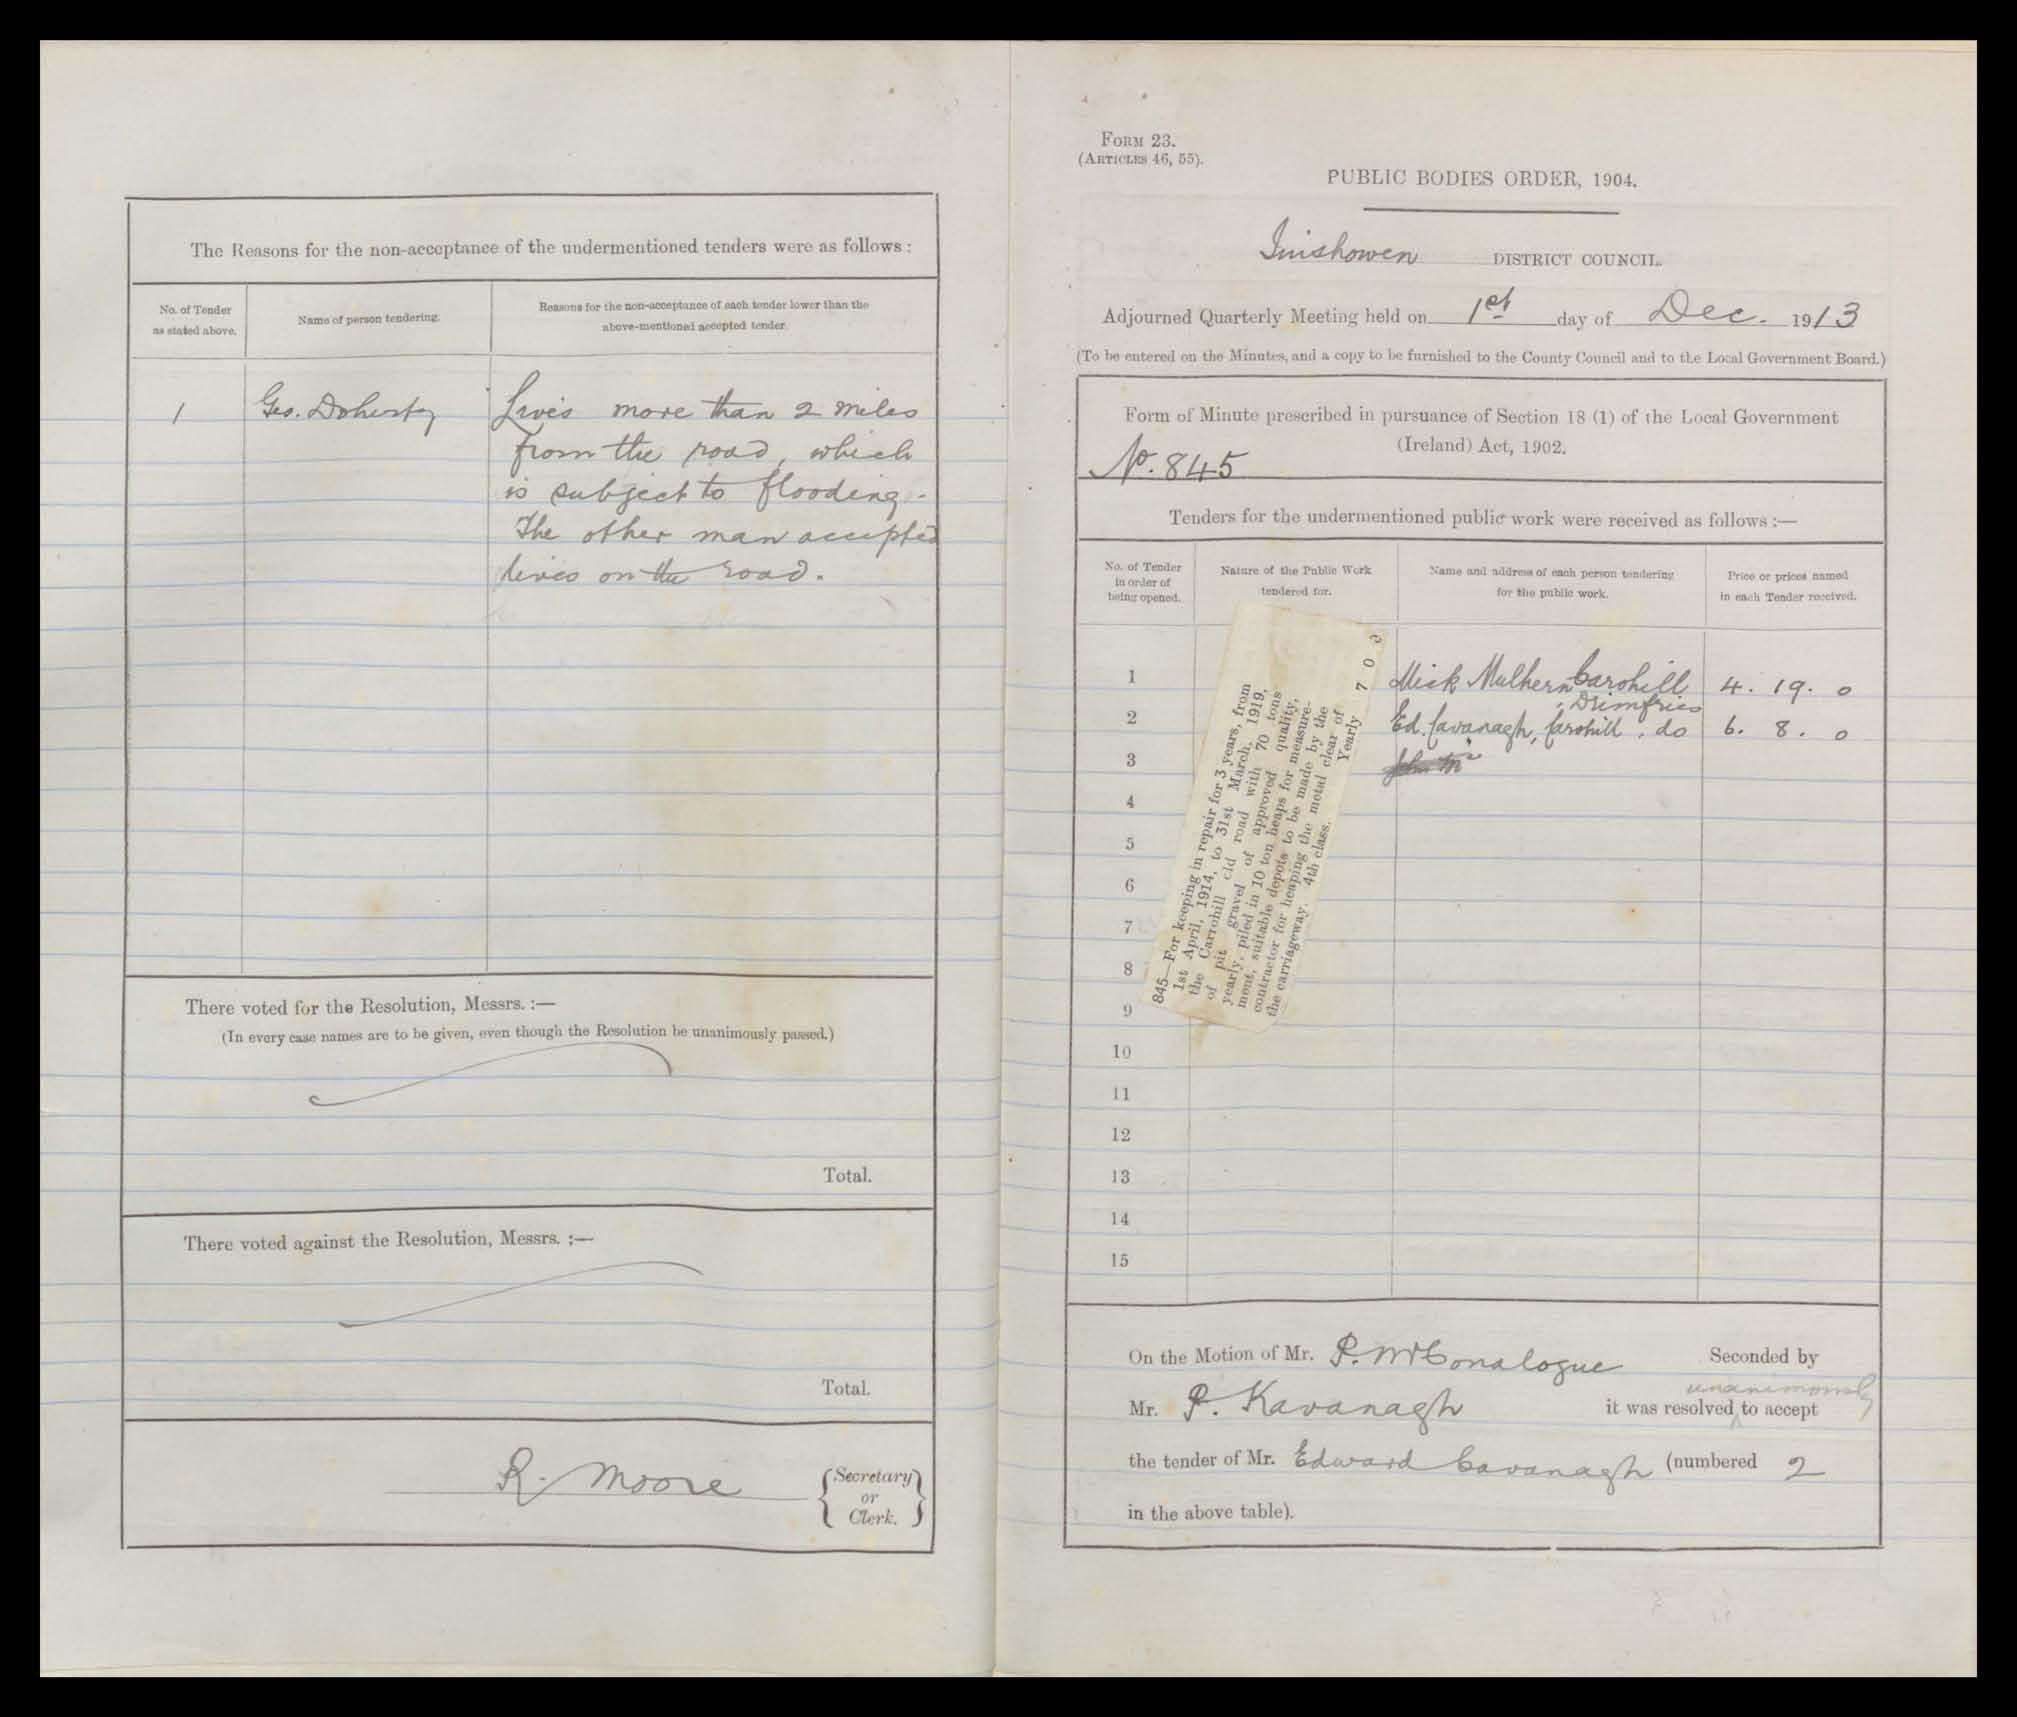 The Reasons for the non-acceptance of the undermentioned tenders were as follows :
No. of Tender
as stated above.
Name of person tendering.
Reasons for the non-acceptance of each tender lower than the
above-mentioned accepted tender.
1 Geo. Doherty Lives more than 2 miles
from the road, which
is subject to flooding.
The other man accepted
lives on the road.
There voted for the Resolution, Messrs. :—
(In every case names are to be given, even though the Resolution be unanimously passed.)
Total.
There voted against the Resolution, Messrs. :—
Total.
R. Moore
{Secretary
or
Clerk.}
Form 23.
(Articles 46, 55).
PUBLIC BODIES ORDER, 1904.
Inishowen DISTRICT COUNCIL.
Adjourned Quarterly Meeting held on 1st day of Dec. 1913
(To be entered on the Minutes, and a copy to be furnished to the County Council and to the Local Government Board.)
Form of Minute prescribed in pursuance of Section 18 (1) of the Local Government
(Ireland) Act, 1902.
No. 845
Tenders for the undermentioned public work were received as follows :—
No. of Tender
in order of
being opened.
Nature of the Public Work
tendered for.
Name and address of each person tendering
for the public work.
Price or prices named
in each Tender received.
845—For keeping in repair for 3 years, from
1st April, 1914, to 31st March, 1919,
the Carrohill old road with 70 tons
of pit gravel of approved quality,
yearly, piled in 10 ton heaps for measure-
ment, suitable depots to be made by the
contractor for heaping the metal clear of
the carriageway. 4th class. Yearly 7 0 0
1 Mick Mulhern Carohill 4. 19. 0
, Drimfries
2 Ed. Cavanagh, Carohill, do 6. 8. 0
3
4
5
6
7
8
9
10
11
12
13
14
15
On the Motion of Mr. P. McConalogue Seconded by
unanimously
Mr. P. Kavanagh it was resolved to accept
the tender of Mr. Edward Cavanagh (numbered 2
in the above table).